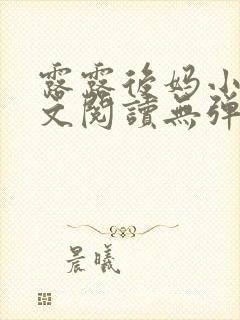 露露後妈小
文閱讀無弹
晨曦